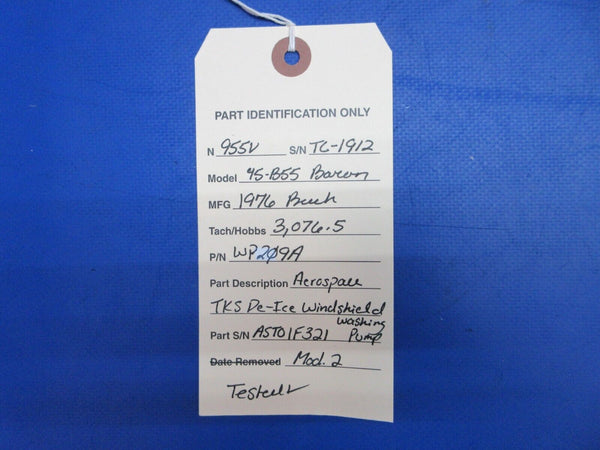 PART IDENTIFICATION ONLY
N 955V S/N TC-1912
Model 95-B55 Baron
MFG 1976 Beech
Tach/Hobbs 3,076.5
P/N WP209A
Part Description Aerospace
TKS De-Ice Windshield
washing
Part S/N AST01F321 Pump
Date Removed Mod. 2
Tested